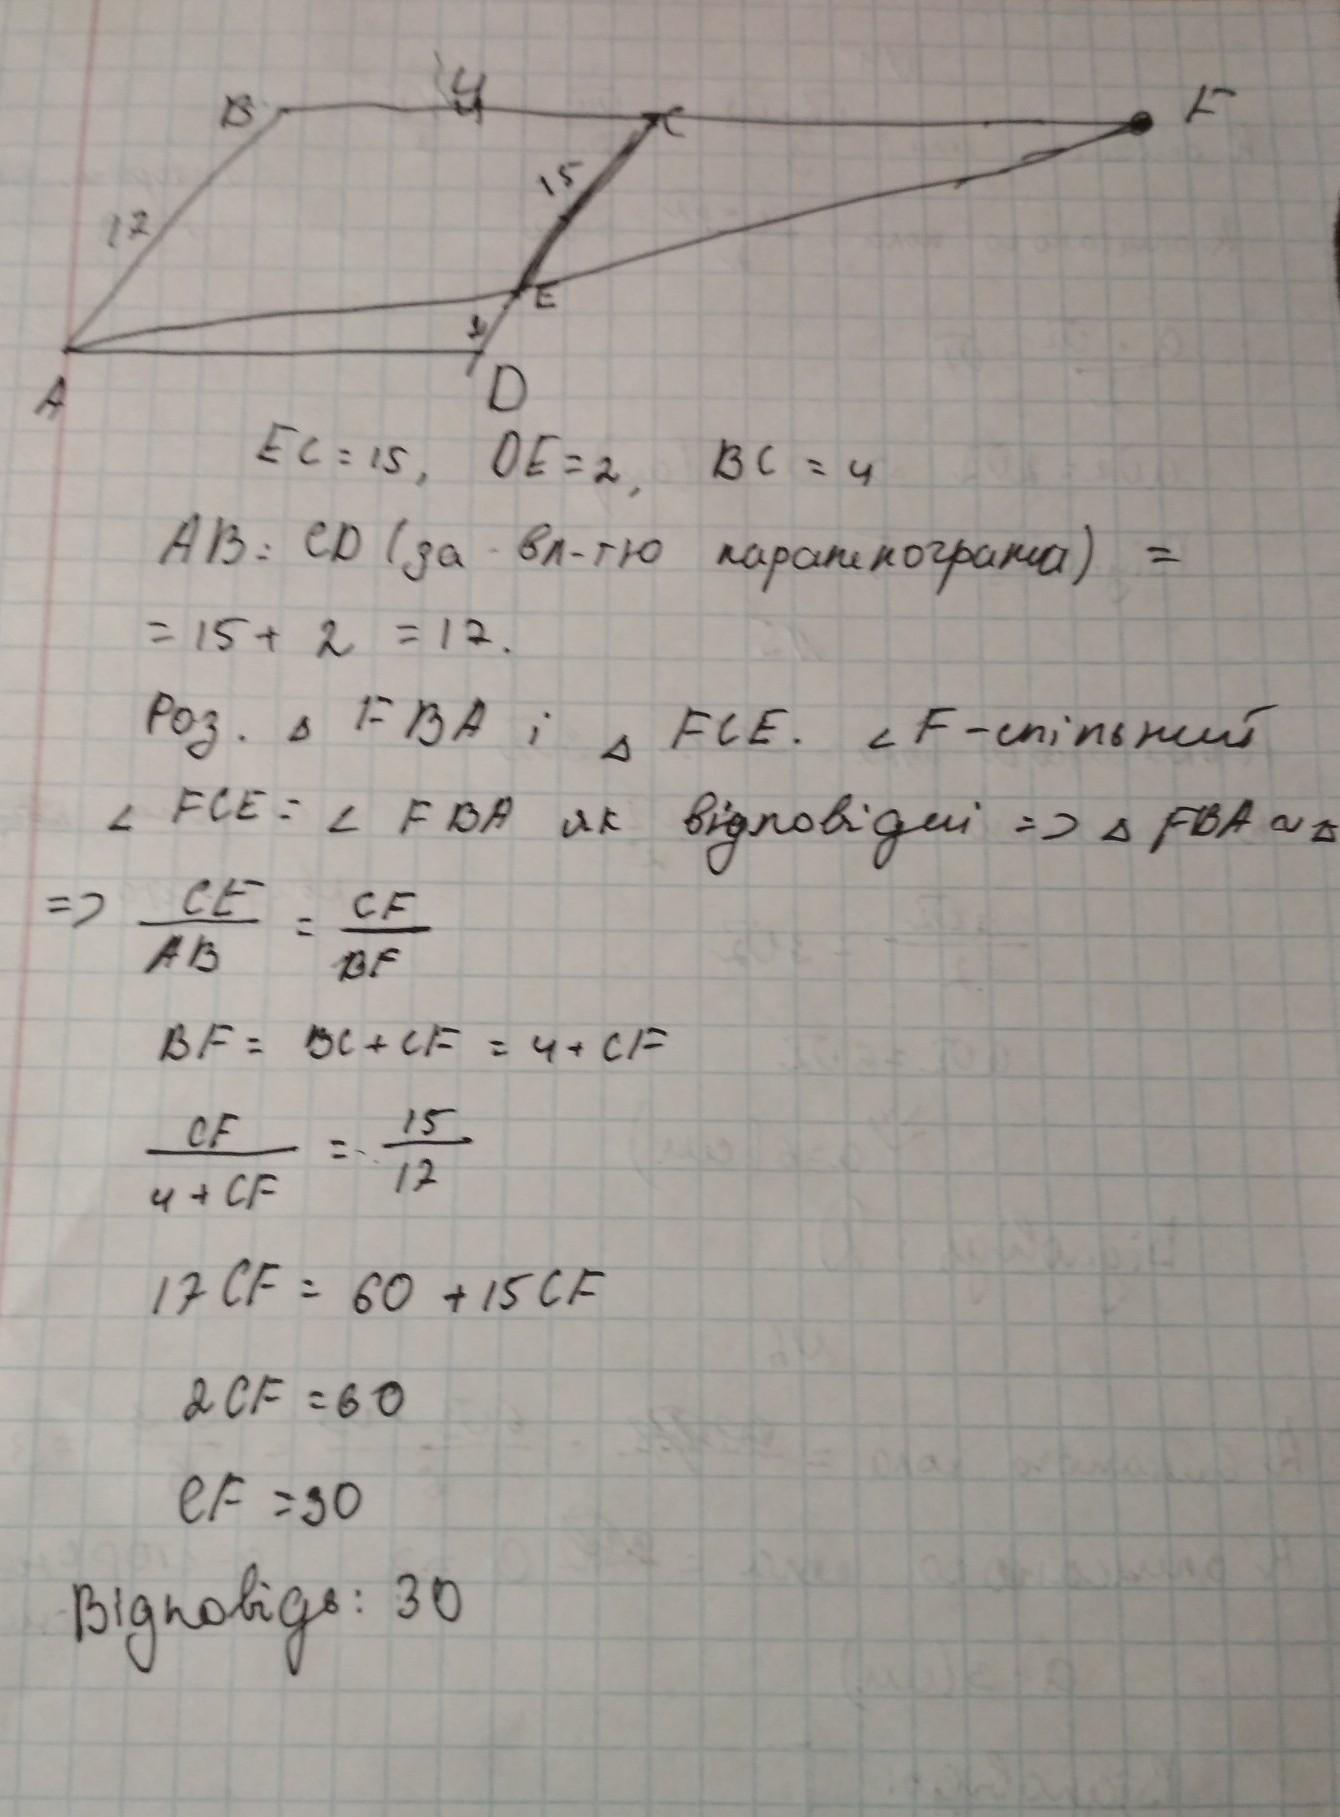 B 4 C F
15
17
E
2
A D
EC = 15, DE = 2, BC = 4
AB = CD (за вл-тю паралелограма) =
= 15 + 2 = 17.
Роз. △ FBA і △ FCE. ∠F - спільний
∠ FCE = ∠ FBA як відповідні => △ FBA ∾ △
=> CE/AB = CF/BF
BF = BC + CF = 4 + CF
CF/4 + CF = 15/17
17CF = 60 + 15CF
2CF = 60
CF = 30
Відповідь: 30